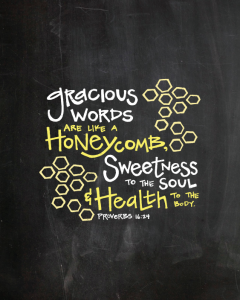 gRacious
WORDS
ARE LIKE A
HONEYCOMB,
SWEETNESS
TO THE SOUL
& HEALTH TO THE
BODY.
PROVERBS 16:24